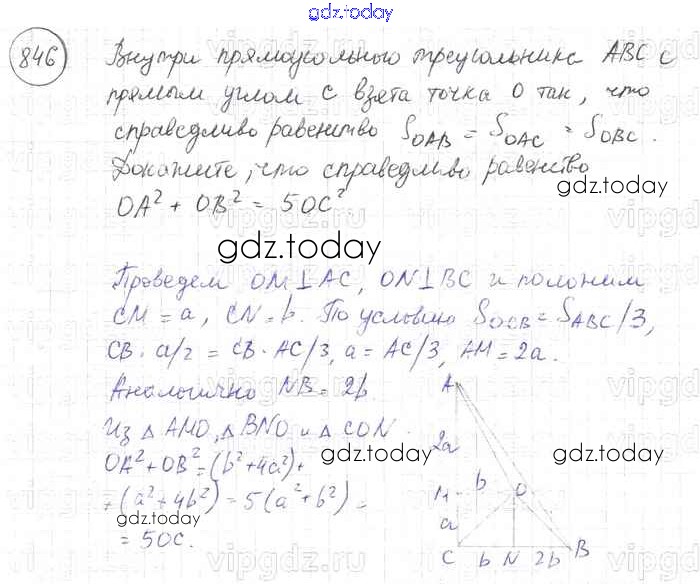 gdz.today
846
Внутри прямоугольного треугольника ABC с
прямым углом C взята точка O так, что
справедливо равенство S_OAB = S_OAC = S_OBC.
Докажите, что справедливо равенство
gdz.today
OA² + OB² = 5OC²
gdz.today
Проведем OM⊥AC, ON⊥BC и положим
CM = a, CN = b. По условию S_OCB = S_ABC/3,
CB · a/2 = CB · AC/3, a = AC/3, AM = 2a.
Аналогично NB = 2b
Из △ AMO, △ BNO и △ CON.
OA² + OB² = (b² + 4a²) +
gdz.today
+ (a² + 4b²) = 5(a² + b²) =
gdz.today
= 5OC.
A
2a
gdz.today
M b O
a
C b N 2b B
vipgdz.ru